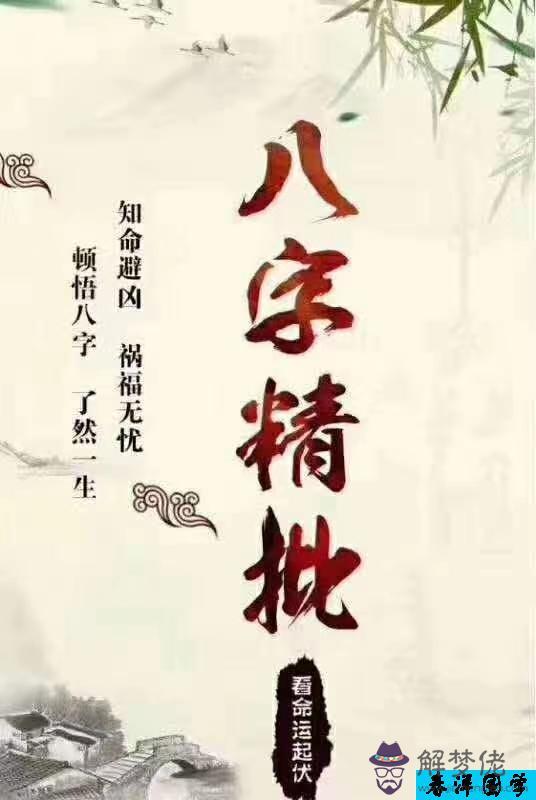 八字精批
看命运起伏
知命避凶 祸福无忧
顿悟八字 了然一生
解梦佬
春洋国学